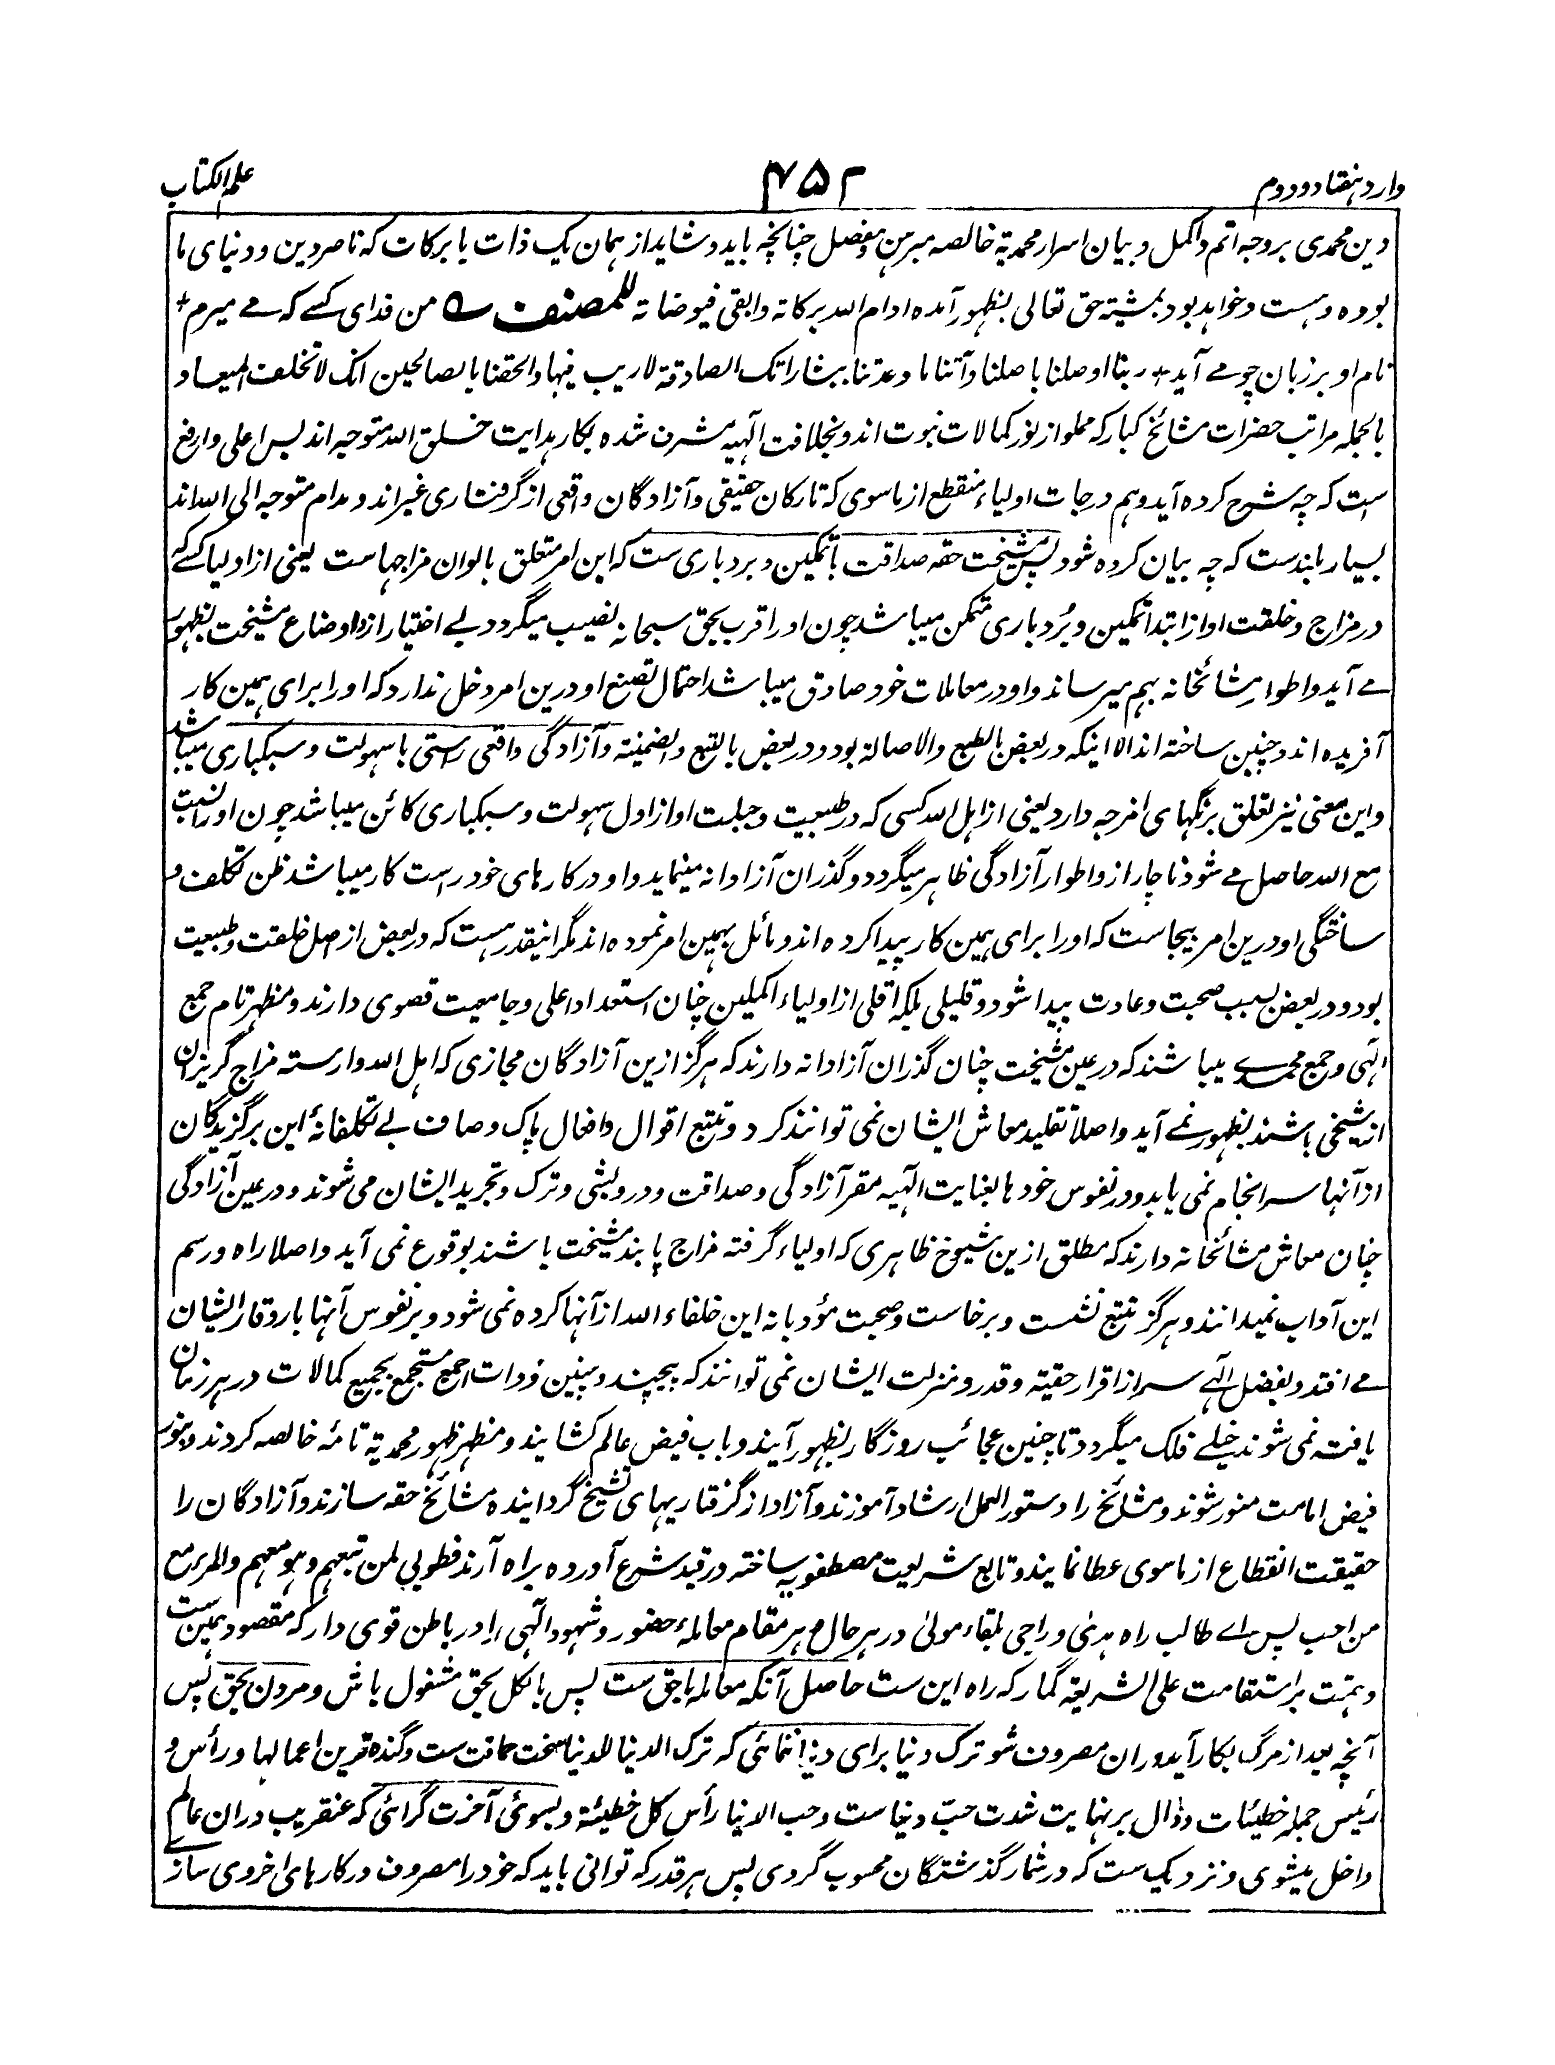 وارد هفتاد و دوم
۴۵۲
علم الکتاب
دین محمدی بروجه اتم و اکمل و بیان اسرار محمدیۀ خالصه مبرهن و مفصل چنانچه باید و شاید از همان یک ذات با برکات که ناصر دین و دنیای ما
بوده و هست و خواهد بود بمشیة حق تعالی بظهور آمده ادام الله برکاته وابقی فیوضاته للمصنف من فدای کسے که مے میرم +
نام او بر زبان چو مے آید + ربنا اوصلنا باصلنا وآتنا ما وعدتنا ببشاراتک الصادقة لاریب فیها والحقنا بالصالحین انک لا تخلف المیعاد و
بالجمله مراتب حضرات مشائخ کبار که مملو از نور کمالات نبوت اند و بخلافت الٰهیه مشرف شده بکار هدایت خلق الله متوجه اند بس اعلی وارفع
است که چه شرح کرده آید و هم درجات اولیاء منقطع از ماسوی که تارکان حقیقی و آزادگان واقعی از گرفتاری غیر اند و مدام متوجه الی الله اند
بسیار بلند ست که چه بیان کرده شود پس مشیخت حقه صداقت با تمکین و بردباری ست که این امر متعلق بالوان مزاجهاست یعنی از اولیا کسے که
در مزاج و خلقت او از ابتدا تمکین و بُردباری متمکن میباشد چون او را قرب بحق سبحانه نصیب میگردد بے اختیار ازو اوضاع مشیخت بظهور
مے آید و اطوار مشائخانه بهم میرساند و او در معاملات خود صادق میباشد احتمال تصنع او درین امر دخل ندارد که او را برای همین کار
آفریده اند و چنین ساخته اند الا اینکه در بعض بالطبع والاصالة بود و در بعض بالتبع والضمنیة و آزادگی واقعی راستی با سهولت و سبکباری میباشد
و این معنی نیز تعلق برنگهای امزجه دارد یعنی از اهل الله کسی که در طبیعت و جبلت او از اول سهولت و سبکباری کائن میباشد چون او را نسبت
مع الله حاصل مے شود ناچار ازو اطوار آزادگی ظاهر میگردد و گذران آزادانه مینماید و او در کارهای خود راست کار میباشد ظن تکلف و
ساختگی او درین امر بیجاست که او را برای همین کار پیدا کرده اند و مائل بهمین امر نموده اند مگر اینقدر هست که در بعض از اصل خلقت و طبیعت
بود و در بعض بسبب صحبت و عادت پیدا شود و قلیلی بلکه اقلی از اولیاء اکملین چنان استعداد اعلی و جامعیت قصوی دارند و مظهر تام جمع
الٰهی و جمع محمدے میباشند که در عین مشیخت چنان گذران آزادانه دارند که هرگز ازین آزادگان مجازی که اهل الله وارسته مزاج گریزان
از شیخی باشند بظهور نمے آید و اصلا تقلید معاش ایشان نمی توانند کرد و تتبع اقوال و افعال پاک و صاف بے تکلفانۀ این برگزیدگان
از آنها سرانجام نمی یابد و در نفوس خودها بعنایت الٰهیه مقر آزادگی و صداقت و درویشی و ترک و تجرید ایشان می شوند و در عین آزادگی
چنان معاش مشائخانه دارند که مطلق ازین شیوخ ظاهری که اولیاء گرفته مزاج پابند مشیخت باشند بوقوع نمی آید و اصلا راه و رسم
این آداب نمیدانند و هرگز تتبع نشست و برخاست و صحبت مؤدبانه این خلفاء الله از آنها کرده نمی شود و بر نفوس آنها بار وقار ایشان
مے افتد و بفضل الٰهے سر از اقرار حقیة و قدر و منزلت ایشان نمی توانند که بپیچند و چنین ذوات اجمع مستجمع بجمیع کمالات در هر زمان
یافته نمی شوند خیلے فلک میگردد تا چنین عجائب روزگار بظهور آیند و باب فیض عالم کشایند و مظهر ظهور محمدیة تامۀ خالصه گردند و بنور
فیض امامت منور شوند و مشائخ را دستور العمل ارشاد آموزند و آزاد از گرفتاریهای تشیخ گردانیده مشائخ حقه سازند و آزادگان را
حقیقت انقطاع از ماسوی عطا نمایند و تابع شریعت مصطفویه ساخته در قید شرع آورده براه آرند فطوبی لمن تبعهم وهو معهم والمرء مع
من احب پس اے طالب راه هدیٰ و راجی لقاء مولیٰ در هر حال و هر مقام معاملۀ حضور و شهود الٰهی را در باطن قوی دار که مقصود همین ست
و همت بر استقامت علی الشریعة گمار که راه این ست حاصل آنکه معامله با حق ست پس بالکل بحق مشغول باش و مردن بحق پس
آنچه بعد از مرگ بکار آید دران مصروف شو ترک دنیا برای دنیا ننمائی که ترک الدنیا للدنیا سخت حماقت ست و گنده ترین اعمالها و رأس و
رئیس جمله خطیئات و دال بر نهایت شدت حبّ دنیاست وحب الدنیا رأس کل خطیئة و بسوئی آخرت گرائی که عنقریب دران عالم
داخل میشوی و نزدیک ست که در شمار گذشتگان محسوب گردی پس هر قدر که توانی باید که خود را مصروف در کارهای اخروی سازے